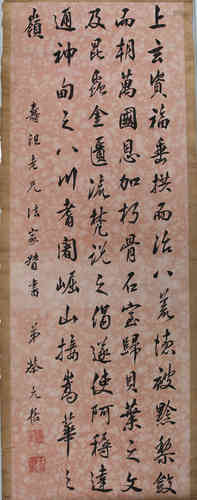 上玄資福垂拱而治八荒德被黔黎斂
而朝萬國恩加朽骨石室歸貝葉之文
及昆蟲金匱流梵說之偈遂使阿耨達
通神甸之八川耆闍崛山接嵩華之
嶺
老兄法家督書
弟蔡元培